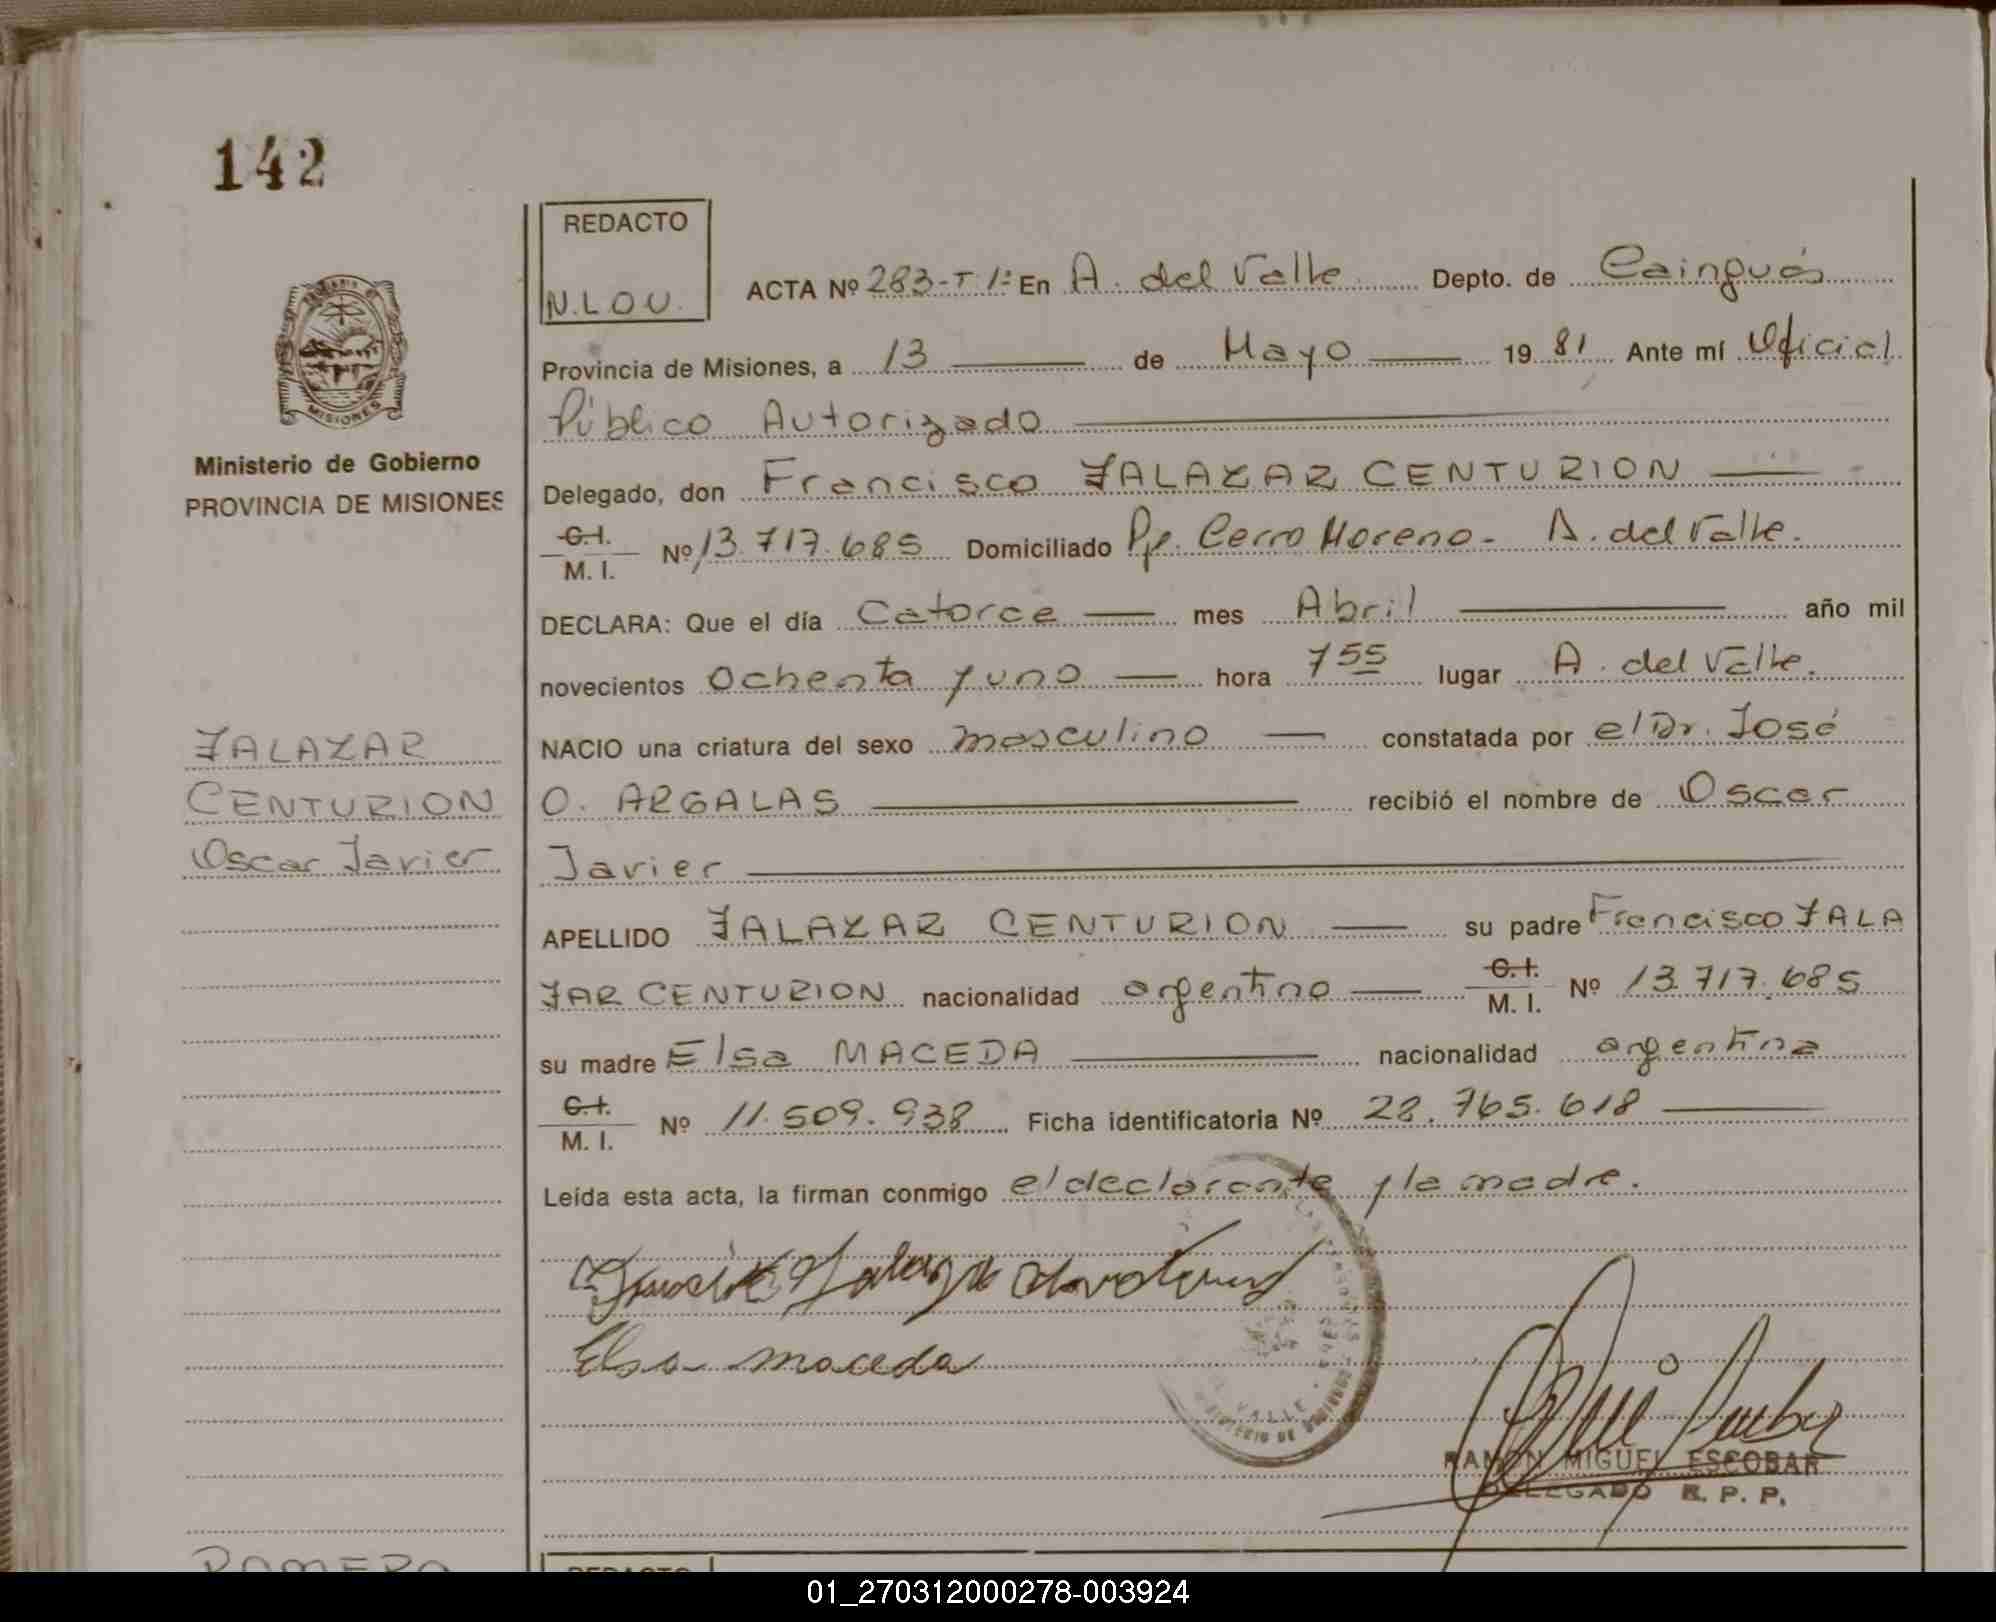 142
REDACTO
N.L.O.U.
ACTA Nº 283-T 1º En A. del Valle Depto. de Cainguás
Provincia de Misiones, a 13 de Mayo 19 81 Ante mí Oficial
Público Autorizado
MISIONES
Ministerio de Gobierno
PROVINCIA DE MISIONES
Delegado, don Francisco ZALAZAR CENTURION
C.I.
M. I. Nº 13.717.685 Domiciliado Pje. Cerro Moreno - A. del Valle.
DECLARA: Que el día Catorce mes Abril año mil
novecientos Ochenta y uno hora 7 55 lugar A. del Valle.
ZALAZAR
CENTURION
Oscar Javier
NACIO una criatura del sexo masculino constatada por el Dr. José
O. ARGALAS recibió el nombre de Oscar
Javier
APELLIDO ZALAZAR CENTURION su padre Francisco ZALA
ZAR CENTURION nacionalidad argentino C.I. M. I. Nº 13.717.685
su madre Elsa MACEDA nacionalidad argentina
C.I.
M. I. Nº 11.509.938 Ficha identificatoria Nº 28.765.618
Leída esta acta, la firman conmigo el declarante y la madre.
Elsa maceda
VALLE
RAMON MIGUEL ESCOBAR
DELEGADO R. P. P.
ROMERO
REDACTO
01_270312000278-003924